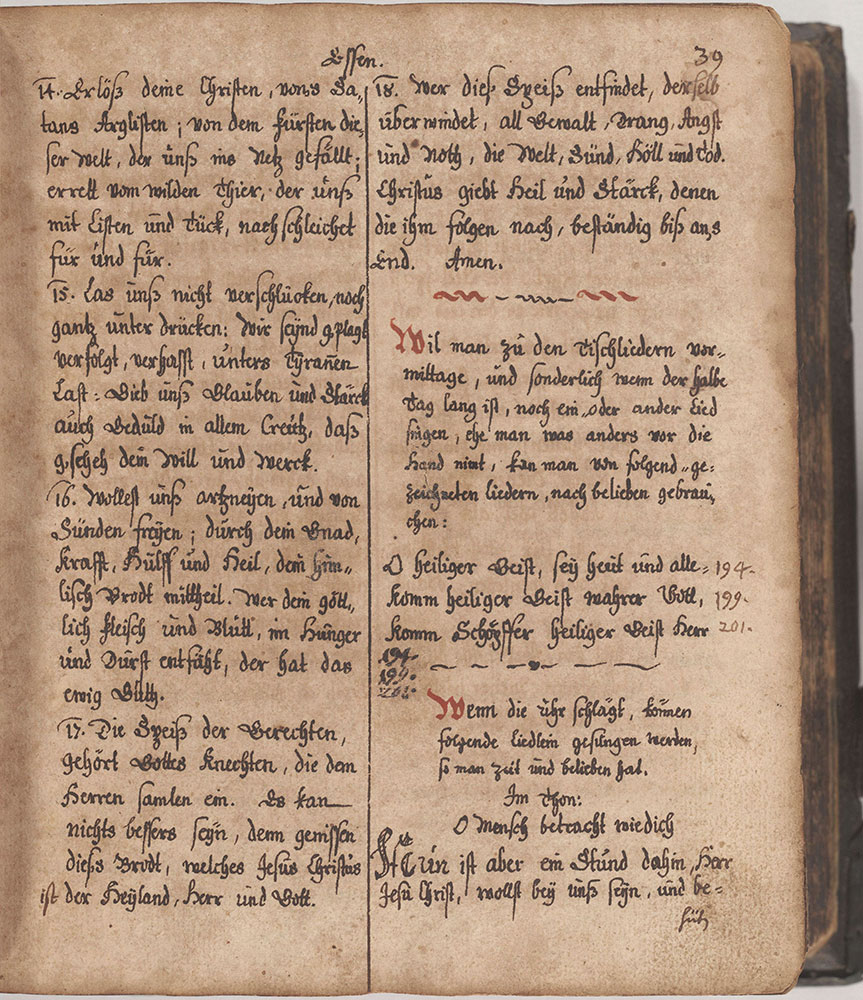 Essen.
39
14. Erlöß deine Christen, von's Sa-
tans Arglisten; von dem fürsten die-
ser Welt, der ünß ins Netz gefällt;
errett vom wilden Thier, der ünß
mit Listen ünd Tück, nach schleichet
für ünd für.
15. Las ünß nicht verschlücken, noch
gantz ünter drücken: Wir seÿnd g'plagt
verfolgt, verhasst, ünters Tÿrañen
Last: Gieb ünß Glauben ünd Stärck
aüch Gedüld in allem Creütz, daß
g'scheh dein Will ünd Werck.
16. Wollest ünß artzneÿen, ünd von
Sünden freÿen; dürch dein Gnad,
Krafft, Hülff ünd Heil, dein him-
lisch Brodt mittheil. Wer dein gött-
lich fleisch ünd Blütt, im Hünger
ünd Dürst entfäht, der hat das
ewig Gütt.
17. Die Speiß der Gerechten,
gehört Gottes Knechten, die dem
Herren samlen ein. Es kan
nichts bessers seÿn, denn genissen
dieß Brodt, welches Jesüs Christüs
ist der Heÿland, Herr ünd Gott.
18. Wer dieß Speiß entfindet, derselb
überwindet, all Gewalt, Drang, Angst
ünd Noth, die Welt, Sünd, Höll ünd Tod.
Christüs giebt Heil ünd Stärck, denen
die ihm folgen nach, beständig biß an's
End. Amen.
Wil man zü den Tischliedern vor-
mittage, ünd sonderlich wenn der halbe
Tag lang ist, noch ein- oder ander Lied
singen, ehe man was anders vor die
Hand nimt, kan man von folgend-ge-
zeichneten liedern, nach belieben gebraü-
chen:
O heiliger Geist, seÿ heüt ünd alle- 194.
Komm heiliger Geist wahrer Gott, 199.
Komm Schöpffer heiliger Geist Herr 201.
194.
199.
201.
Wenn die ühr schlägt, können
folgende liedlein gesüngen werden,
so man zeit ünd belieben hat.
Im Thon:
O Mensch betracht wie dich
Nün ist aber ein Stünd dahin, Herr
Jesü Christ, wollst beÿ ünß seÿn, ünd be-
hüt